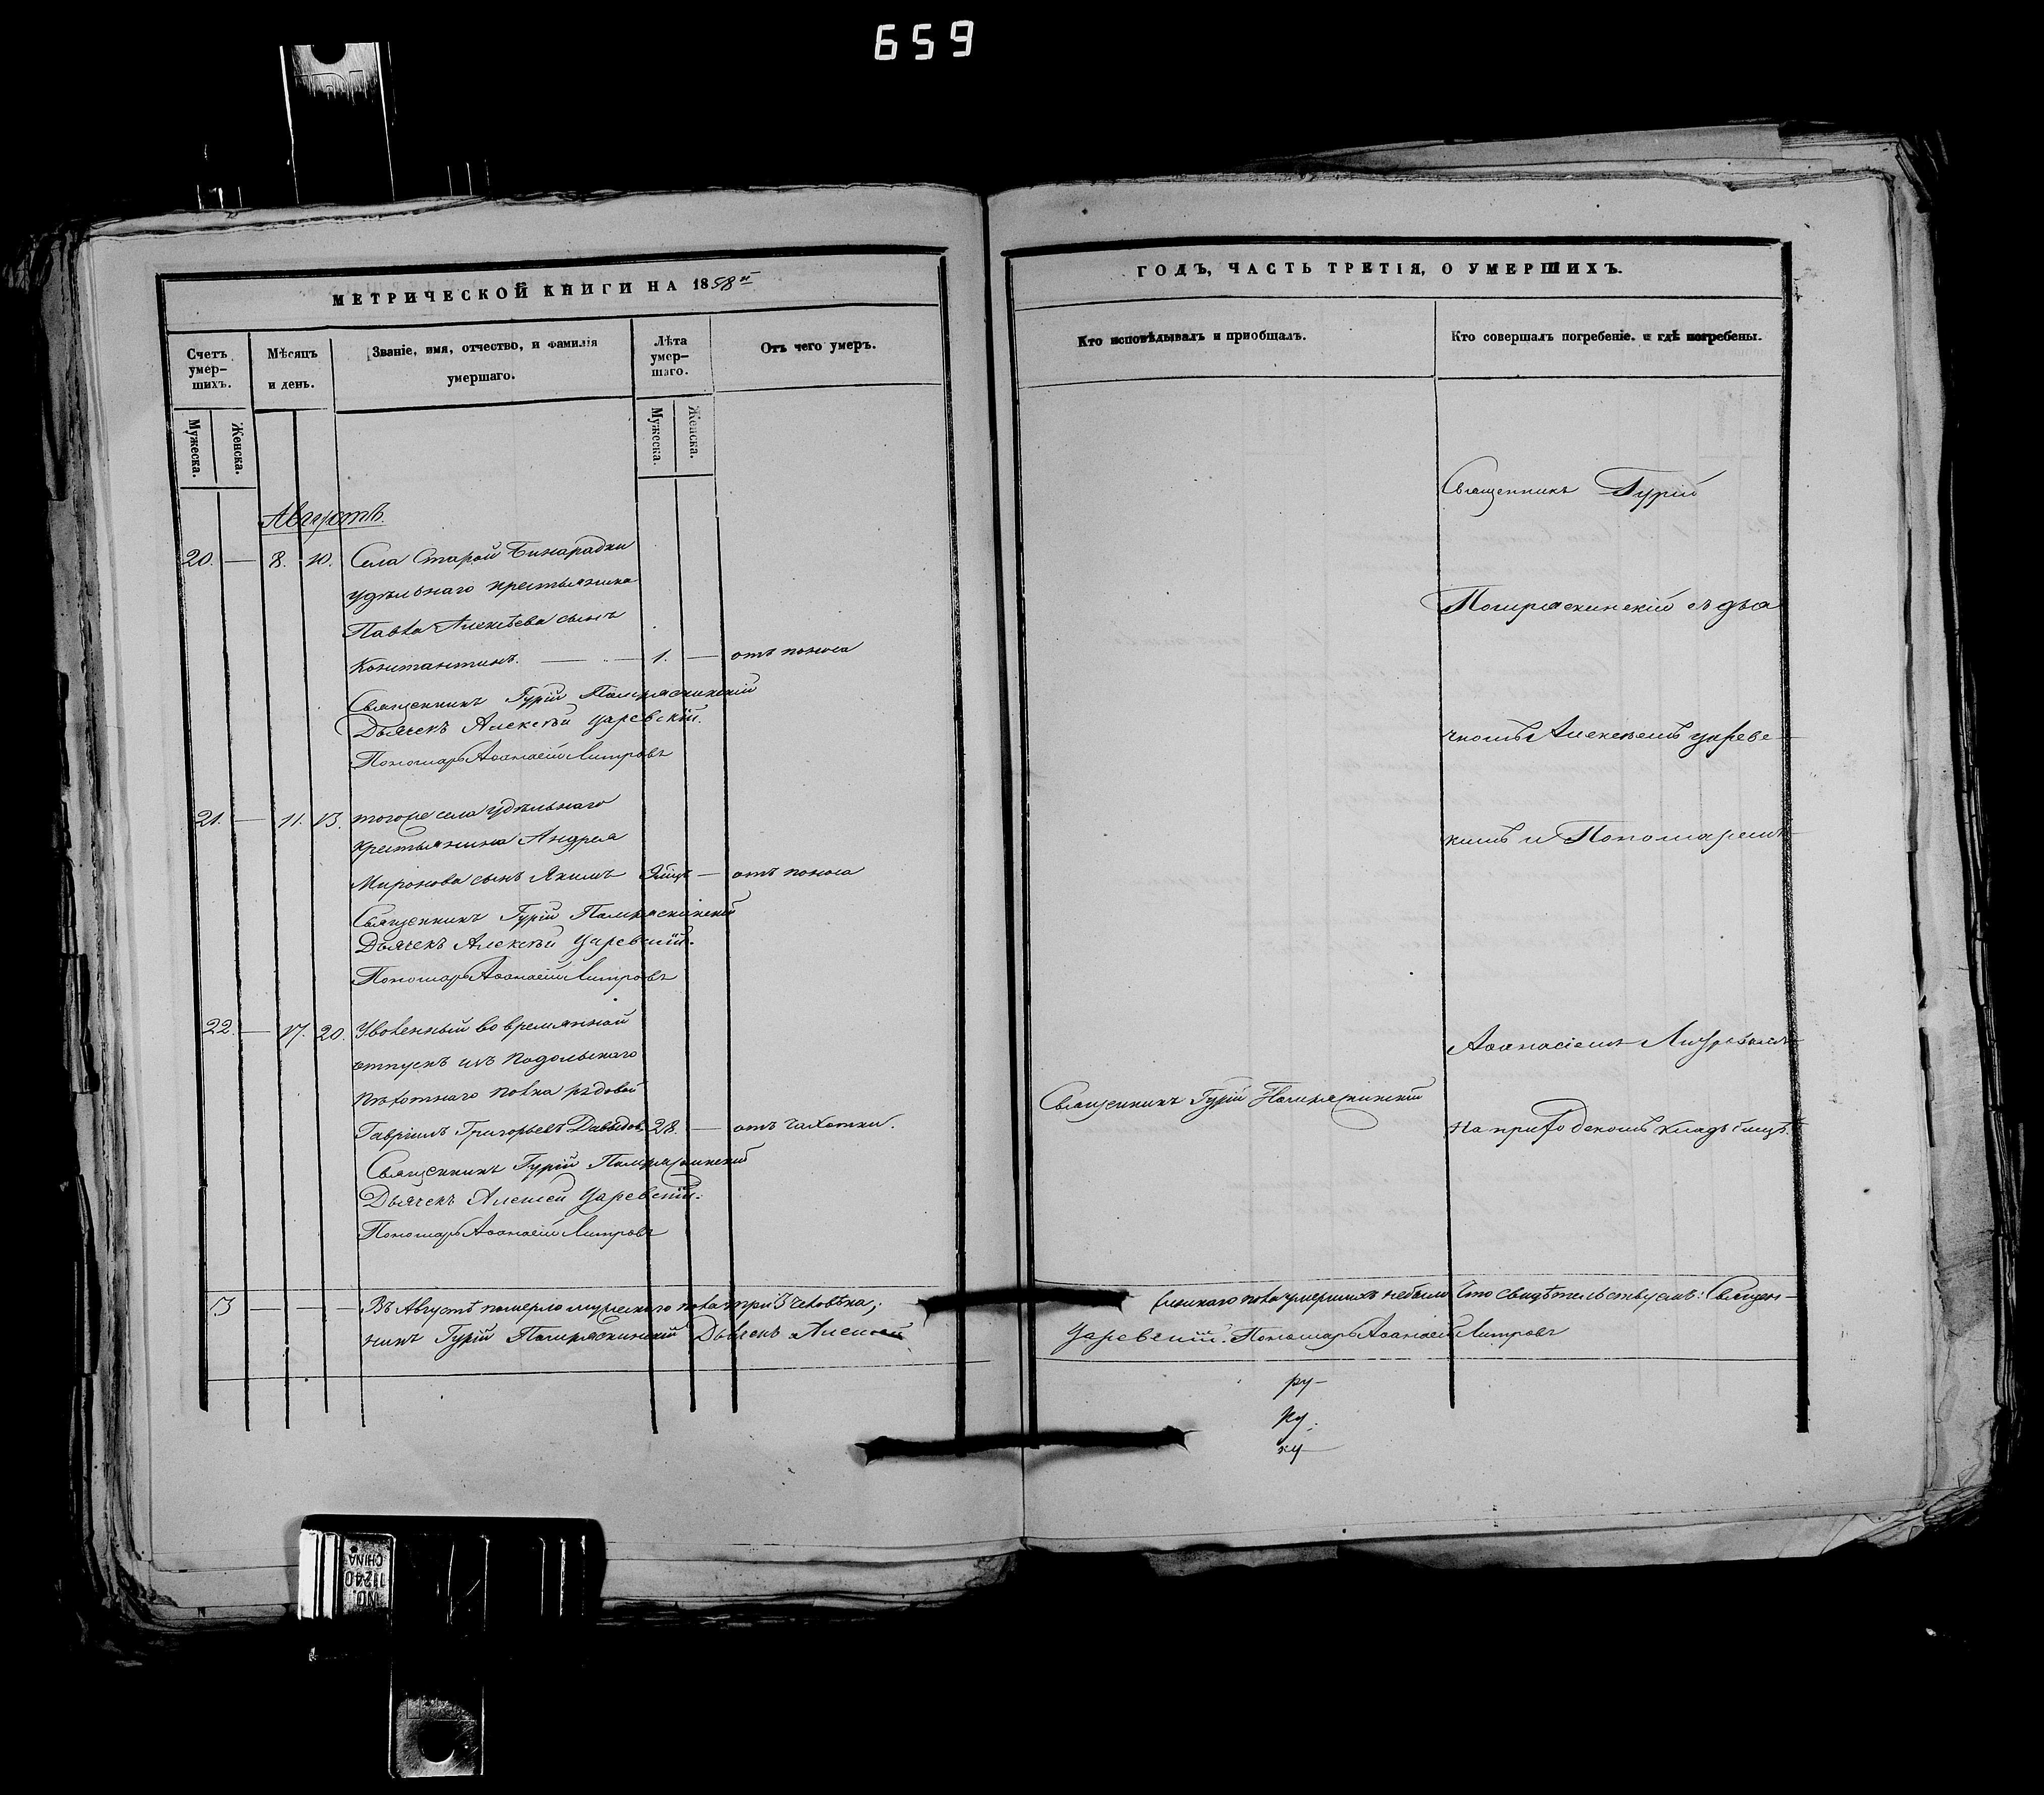 659
МЕТРИЧЕСКОЙ КНИГИ НА 1858й
Счетъ умер-шихъ.
Мѣсяцъ и день.
Званіе, имя, отчество, и фамилія умершаго.
Лѣта умер-шаго.
Отъ чего умеръ.
Мужеска.
Женска.
Мужеска.
Женска.
Августъ.
20. — 8. 10. Села Старой Бинарадки
удѣльнаго крестьянина
Павла Алексѣева сынъ
Константинъ. — — 1. — отъ поноса
Священникъ Гурій Помряскинскій
Дьячекъ Алексѣй Царевскій.
Пономарь Аѳанасій Литровъ
21. — 11. 13. тогоже села удѣльнаго
крестьянина Андрея
Миронова сынъ Якимъ — отъ поноса
Священникъ Гурій Помряскинскій
Дьячекъ Алексѣй Царевскій.
Пономарь Аѳанасій Литровъ
22. — 17. 20. Уволенный во временной
отпускъ изъ Подольскаго
пѣхотнаго полка рядовой
Гавріилъ Григорьевъ Давыдовъ 28. — отъ чахотки.
Священникъ Гурій Помряскинскій
Дьячекъ Алексей Царевскій.
Пономарь Аѳанасій Литровъ
3 — — — Въ Августѣ померло мужескаго пола три 3 человѣка;
никъ Гурій Помряскинскій Дьячекъ Алексей
ГОДЪ, ЧАСТЬ ТРЕТІЯ, О УМЕРШИХЪ.
Кто исповѣдывалъ и пріобщалъ.
Кто совершалъ погребеніе. и гдѣ погребены.
Священникъ Гурій
Помряскинскій съ дья
чкомъ Алексѣемъ Царевс-
кимъ и Пономаремъ
Аѳанасіемъ Литровымъ
Священникъ Гурій Помряскинскій
на приходскомъ кладбищѣ.
женскаго пола умершихъ небыло Что свидѣтельствуемъ: Священ-
Царевскій. Пономарь Аѳанасій Литровъ
ру-
ку-
ку
NO.
11240
CHINA